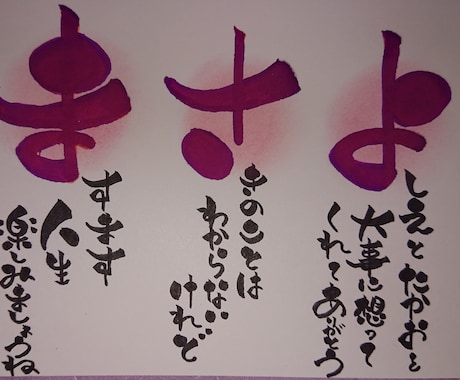 よ
しえとたかおを
大事に想って
くれてありがとう
さ
きのことは
わからない
けれど
ま
すます
人生
楽しみましょうね